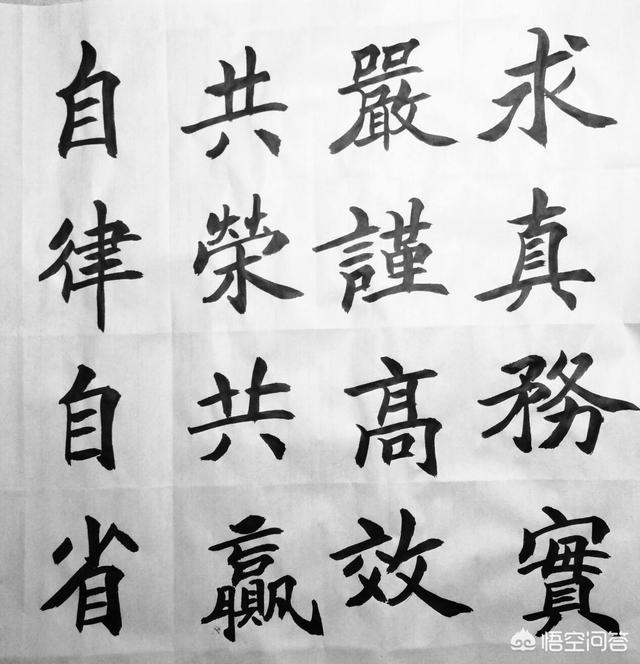 求真務實
嚴謹高效
共榮共贏
自律自省
悟空问答